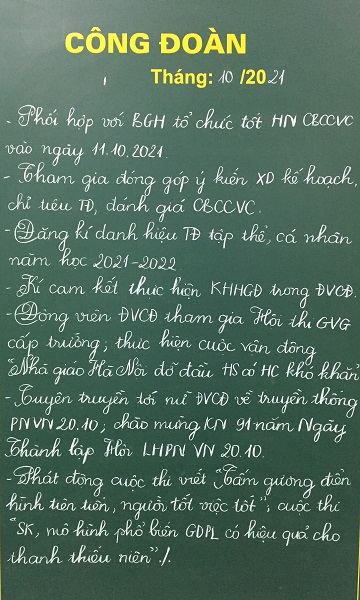 CÔNG ĐOÀN
Tháng: 10 /2021
- Phối hợp với BGH tổ chức tốt HN CBCCVC
vào ngày 11.10.2021.
- Tham gia đóng góp ý kiến XD kế hoạch,
chỉ tiêu TĐ, đánh giá CBCCVC.
- Đăng kí danh hiệu TĐ tập thể, cá nhân
năm học 2021-2022
- Kí cam kết thực hiện KHHGĐ trong ĐVCĐ.
- Động viên ĐVCĐ tham gia Hội thi GVG
cấp trường; thực hiện cuộc vận động
"Nhà giáo Hà Nội đỡ đầu HS có HC khó khăn"
- Tuyên truyền tới nữ ĐVCĐ về truyền thống
PNVN 20.10; chào mừng KN 91 năm Ngày
Thành lập Hội LHPN VN 20.10.
- Phát động cuộc thi viết "Tấm gương điển
hình tiên tiến, người tốt việc tốt"; cuộc thi
"SK, mô hình phổ biến GDPL có hiệu quả cho
thanh thiếu niên"./.